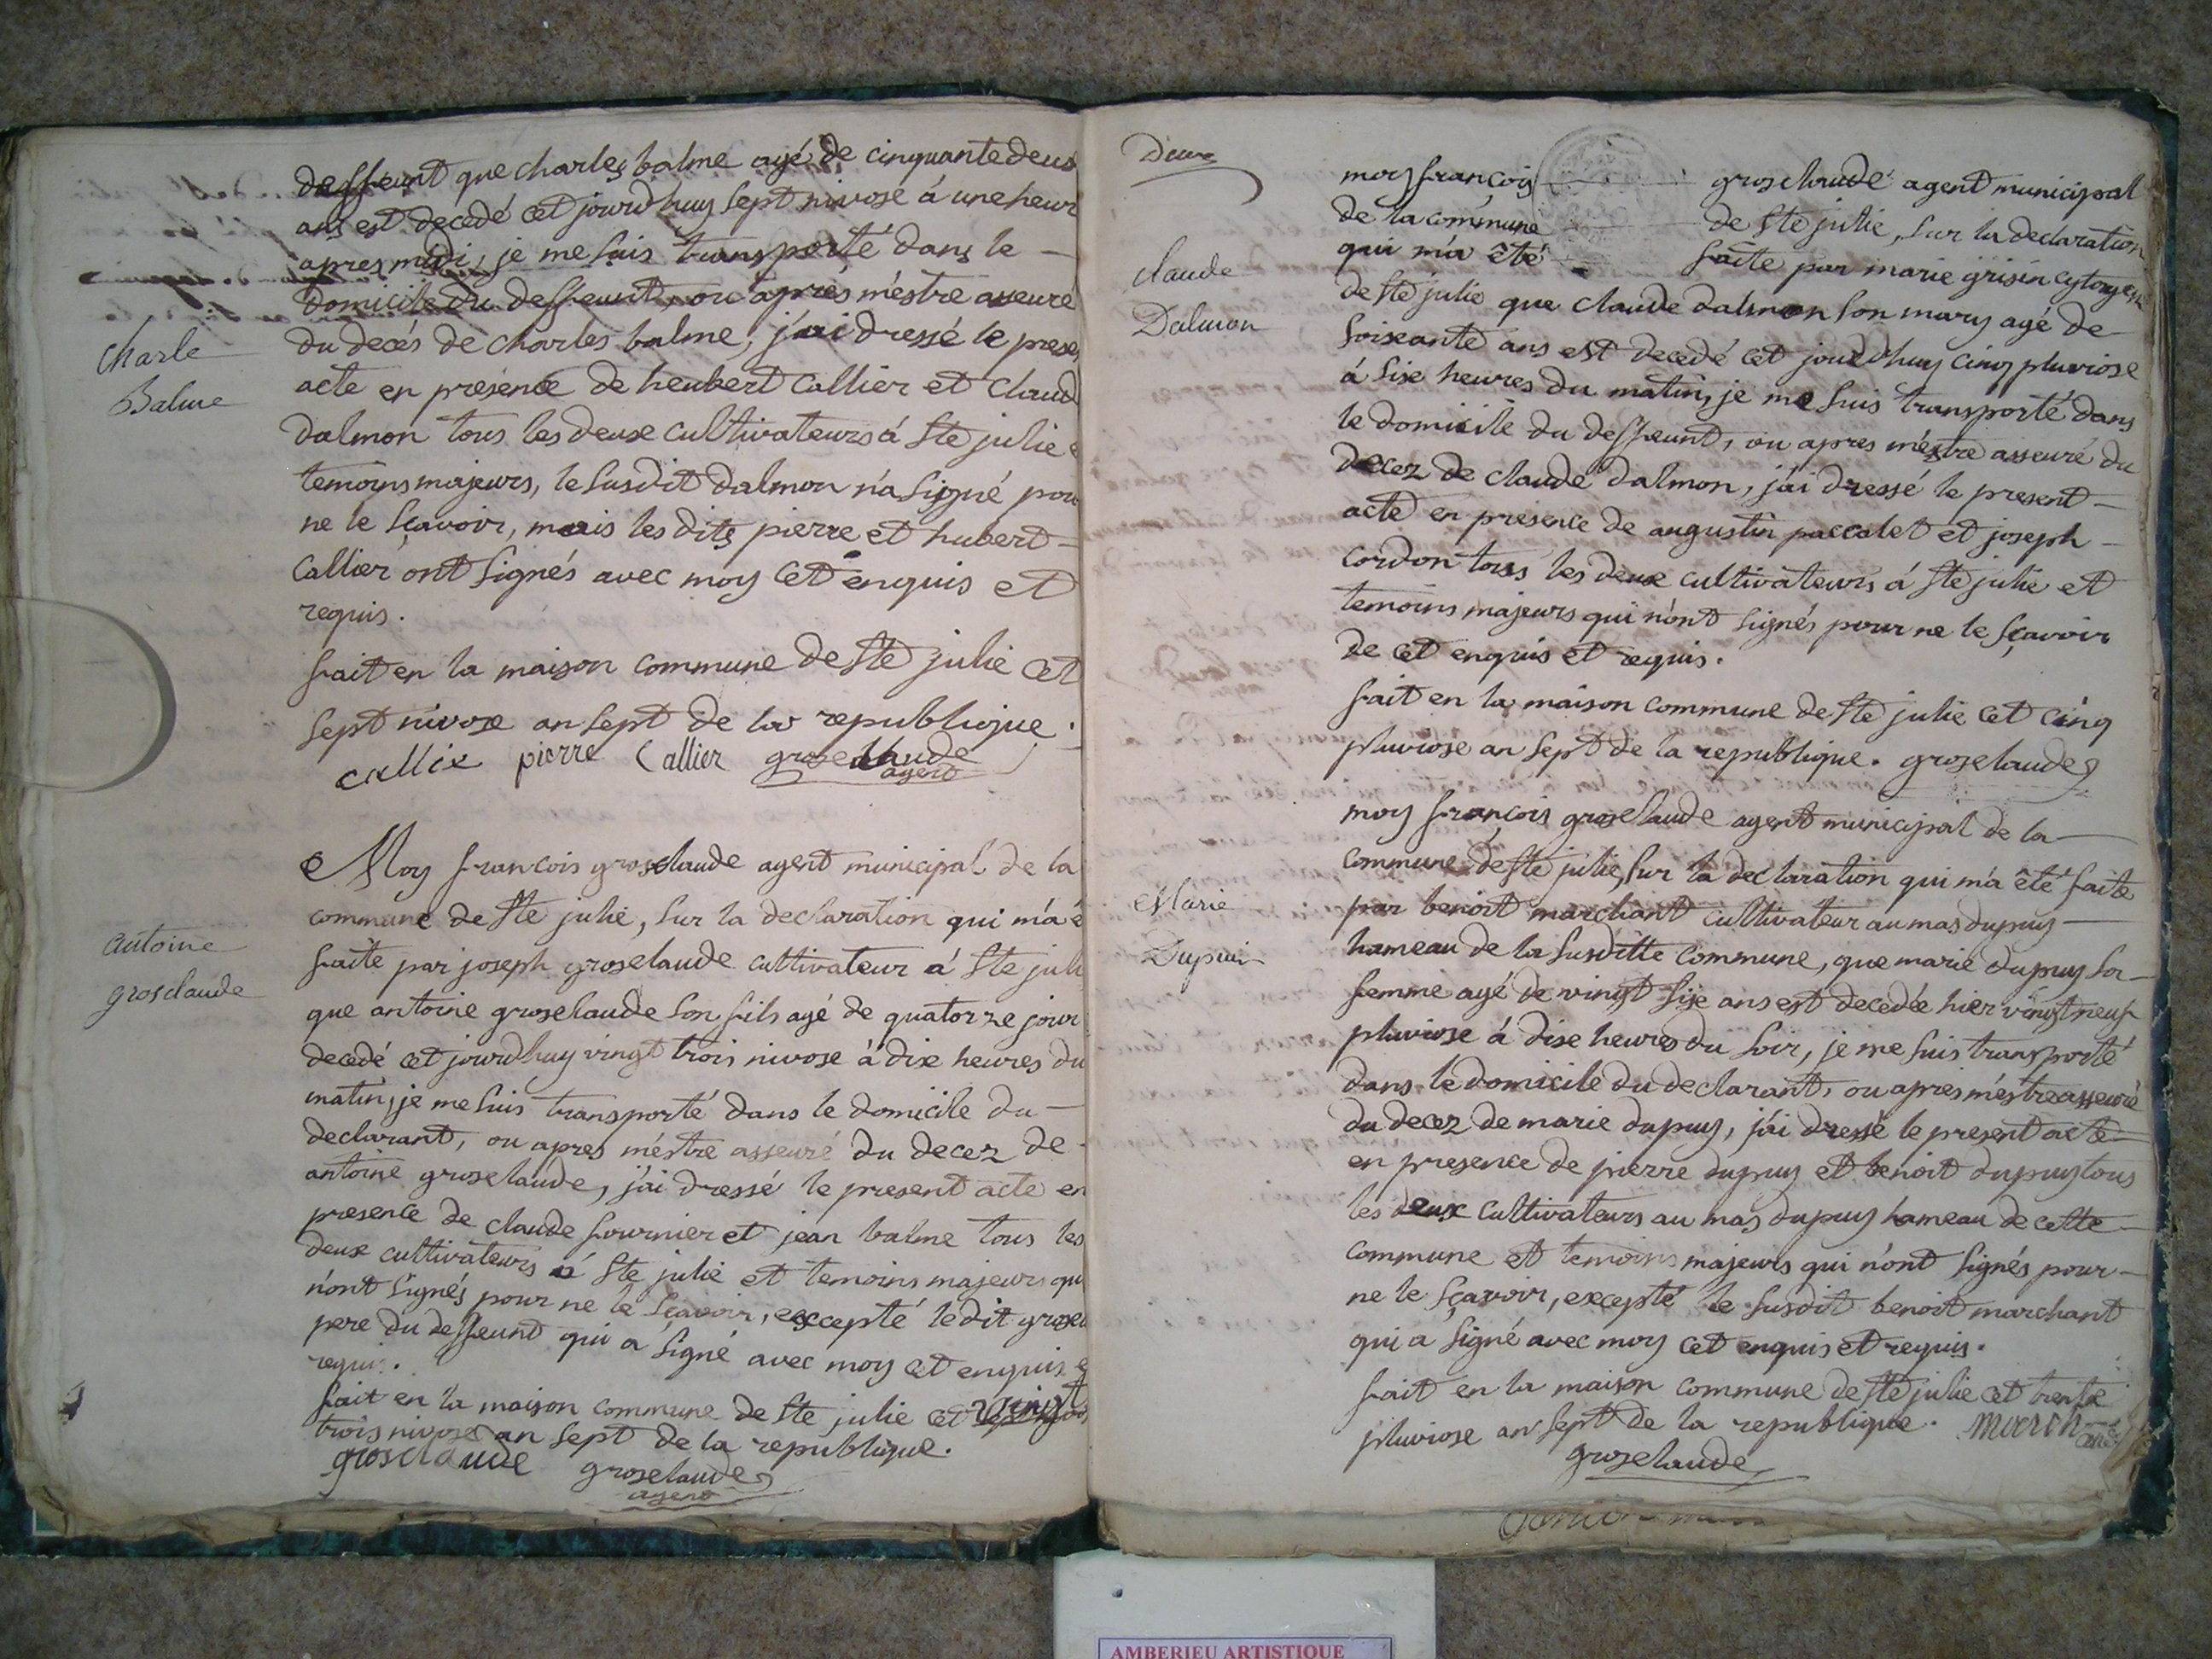 desfeunt que charles balme agé de cinquante deux
ans est decedé cet jourd'huy sept nivose á une heure
apres midi, je me suis transporté dans le
domicile du desfeunt, ou aprés m'estre asseuré
du decés de charles balme, j'ai dressé le prese
charle
Balme
acte en presence de heubert Callier et Claud
dalmon tous les deux cultivateurs á Ste julie e
temoins majeurs, le susdit dalmon n'a signé pour
ne le sçavoir, mais les dits pierre et hubert
Callier ont signés avec moy cet enquis et
requis.
fait en la maison commune de Ste julie cet
sept nivose an sept de la republique.
callie pierre Callier groselaude
agent
Moy francois groselaude agent municipal de la
commune de Ste julie, sur la declaration qui m'a é
antoine
grosclaude
faite par joseph groselaude cultivateur á Ste juli
que antoine groselaude son fils agé de quatorze jour
decedé cet jourd'huy vingt trois nivose à dix heures du
matin, je me suis transporté dans le domicile du
declarant, ou apres m'éstre asseuré du decez de
antoine groselaude, j'ai dressé le present acte en
presence de claude fournier et jean balme tous les
deux cultivateurs á Ste julie et temoins majeurs qui
n'ont signés pour ne le sçavoir, excepté le dit grosel
pere du desfeunt qui a signé avec moy cet enquis e
requis.
fait en la maison commune de Ste julie cet vingt
trois nivose an sept de la republique.
grosclaude groselaude
agent
Deux
moy françois groselaude agent municipal
de la commune de Ste julie, sur la declaration
qui m'a été faite par marie grisin cytoyene
claude
Dalmon
de Ste julie que claude dalmon son mary agé de
soixante ans est decedé cet jourd'huy cinq pluviose
á six heures du matin, je me suis transporté dans
le domicile du desfeunt, ou apres m'estre asseuré du
decez de claude dalmon, j'ai dressé le present
acte en presence de augustin paccalet et joseph
cordon tous les deux cultivateurs á Ste julie et
temoins majeurs qui n'ont signés pour ne le sçavoir
de cet enquis et requis.
fait en la maison commune de Ste julie cet cinq
pluviose an sept de la republique. groselaude
moy françois groselaude agent municipal de la
commune de Ste julie, sur la declaration qui m'a été faite
Marie
Dupuis
par benoit marchant cultivateur au mas dupuy
hameau de la susditte commune, que marie dupuy sa
femme agé de vingt six ans est decedée hier vingt neuf
pluviose á dix heures du soir, je me suis transporté
dans le domicile du declarant, ou apres m'éstre asseuré
du decez de marie dupuy, j'ai dressé le present acte
en presence de pierre dupuy et benoit dupuy tous
les deux cultivateurs au mas dupuy hameau de cette
commune et temoins majeurs qui n'ont signés pour
ne le sçavoir, excepté le susdit benoit marchant
qui a signé avec moy cet enquis et requis.
fait en la maison commune de Ste julie cet trente
pluviose an sept de la republique.
groselaude
AMBERIEU ARTISTIQUE